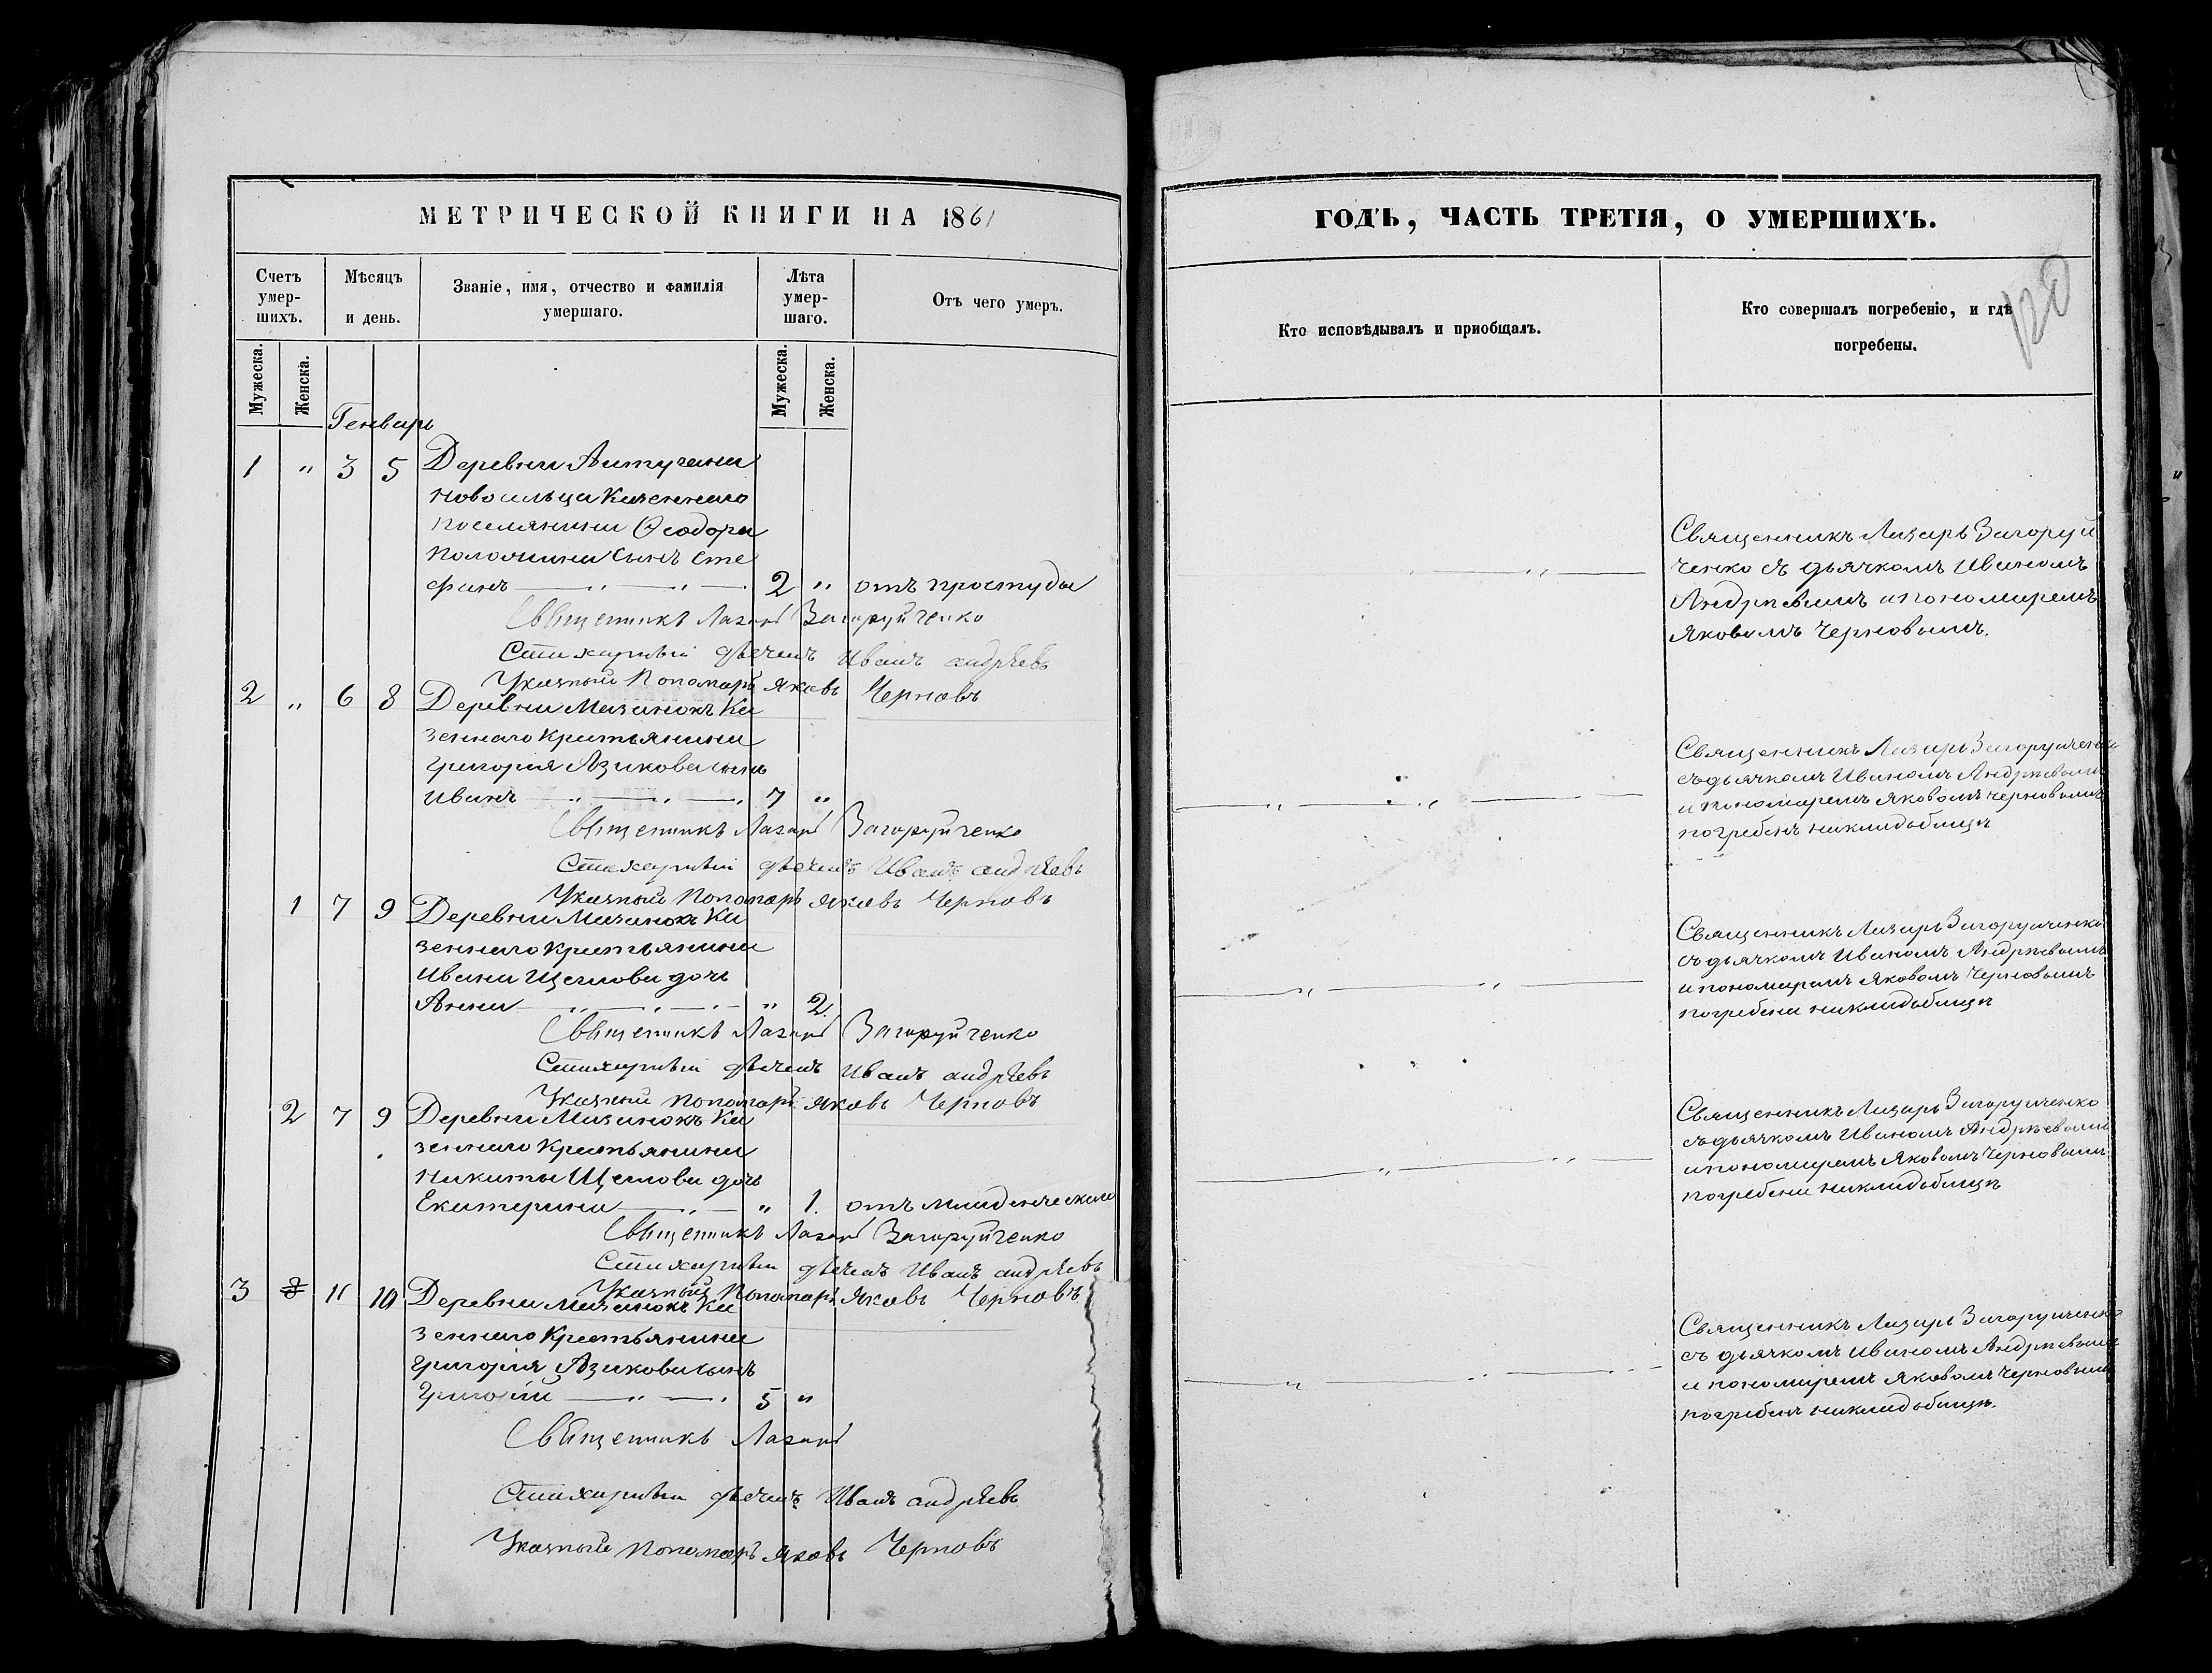 МЕТРИЧЕСКОЙ КНИГИ НА 1861
Счетъ умер-шихъ.
Мѣсяцъ и день.
Званіе, имя, отчество и фамилія умершаго.
Лѣта умер-шаго.
Отъ чего умеръ.
Мужеска.
Женска.
Мужеска.
Женска.
Генварь
1 " 3 5 Деревни
казеннаго
поселянина Ѳеодора
сынъ Сте
фанъ 2 " отъ простуды
Священникъ Лазарь Загоруйченко
Стихарный дьячекъ Иванъ Андрѣевъ
Указный Пономарь Яковъ Черновъ
2 " 6 8 Деревни Мазанокъ Ка
зеннаго Крестьянина
Григорія Азикова сынъ
Иванъ 7 "
Священникъ Лазарь Загоруйченко
Стихарный дьячекъ Иванъ Андрѣевъ
Указный Пономарь Яковъ Черновъ
1 7 9 Деревни Мазанокъ Ка
зеннаго Крестьянина
Ивана Щеглова дочь
Анна " 2
Священникъ Лазарь Загоруйченко
Стихарный дьячекъ Иванъ Андрѣевъ
Указный Пономарь Яковъ Черновъ
2 7 9 Деревни Мазанокъ Ка
зеннаго Крестьянина
Никиты Щеглова дочь
Екатерина " 1. отъ младенческаго
Священникъ Лазарь Загоруйченко
Стихарный дьячекъ Иванъ Андрѣевъ
Указный Пономарь Яковъ Черновъ
3 11 10 Деревни Мазанокъ Ка
зеннаго Крестьянина
Григорія Азикова сынъ
Григорій 5 "
Священникъ Лазарь
Стихарный дьячекъ Иванъ Андрѣевъ
Указный Пономарь Яковъ Черновъ
ГОДЪ, ЧАСТЬ ТРЕТІЯ, О УМЕРШИХЪ.
Кто исповѣдывалъ и приобщалъ.
Кто совершалъ погребеніе, и гдѣ
погребены.
Священникъ Лазарь Загоруй
ченко съ дьячкомъ Иваномъ
Андрѣевымъ и пономаремъ
Яковомъ Черновымъ.
Священникъ Лазарь Загоруйченко
съ дьячкомъ Иваномъ Андрѣевымъ
и пономаремъ Яковомъ Черновымъ
погребенъ накладбищѣ
Священникъ Лазарь Загоруйченко
съ дьячкомъ Иваномъ Андрѣевымъ
и пономаремъ Яковомъ Черновымъ
погребена накладбищѣ
Священникъ Лазарь Загоруйченко
съ дьячкомъ Иваномъ Андрѣевымъ
и пономаремъ Яковомъ Черновымъ
погребена накладбищѣ
Священникъ Лазарь Загоруйченко
съ дьячкомъ Иваномъ Андрѣевымъ
и пономаремъ Яковомъ Черновымъ
погребенъ накладбищѣ.